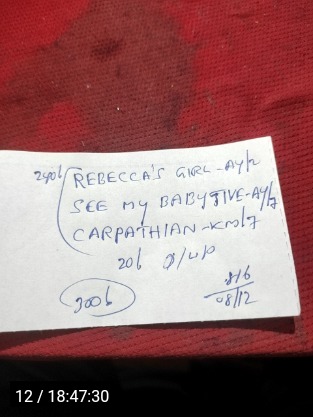 240b REBECCA'S GIRL - AY/7
SEE MY BABY JIVE - AY/7
CARPATHIAN - KM/7
20b
300b
08/12
12 / 18:47:30